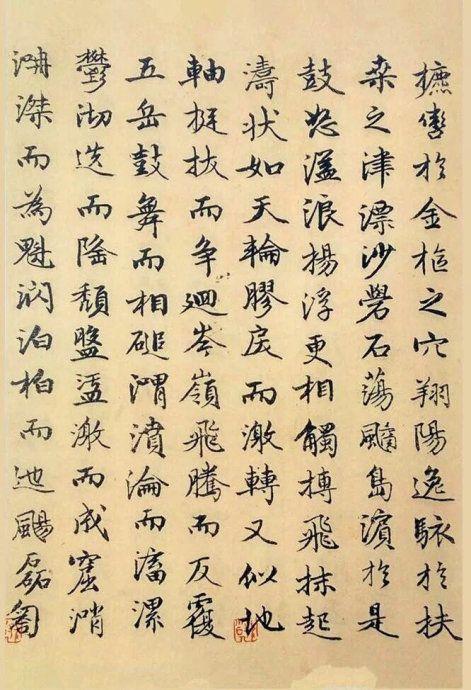 摝轡於金樞之穴翔陽逸駭於扶
桑之津漂沙礐石蕩颵島濱於是
鼓怒溢浪揚浮更相觸搏飛沫起
濤状如天輪膠戾而激轉又似地
軸挺拔而争迴岑嶺飛騰而反覆
五岳鼓舞而相磓渭濆淪而滀漯
鬱沏迭而隆頹盤盓激而成窟
滐而為魁泊柏而迆颺磊匒